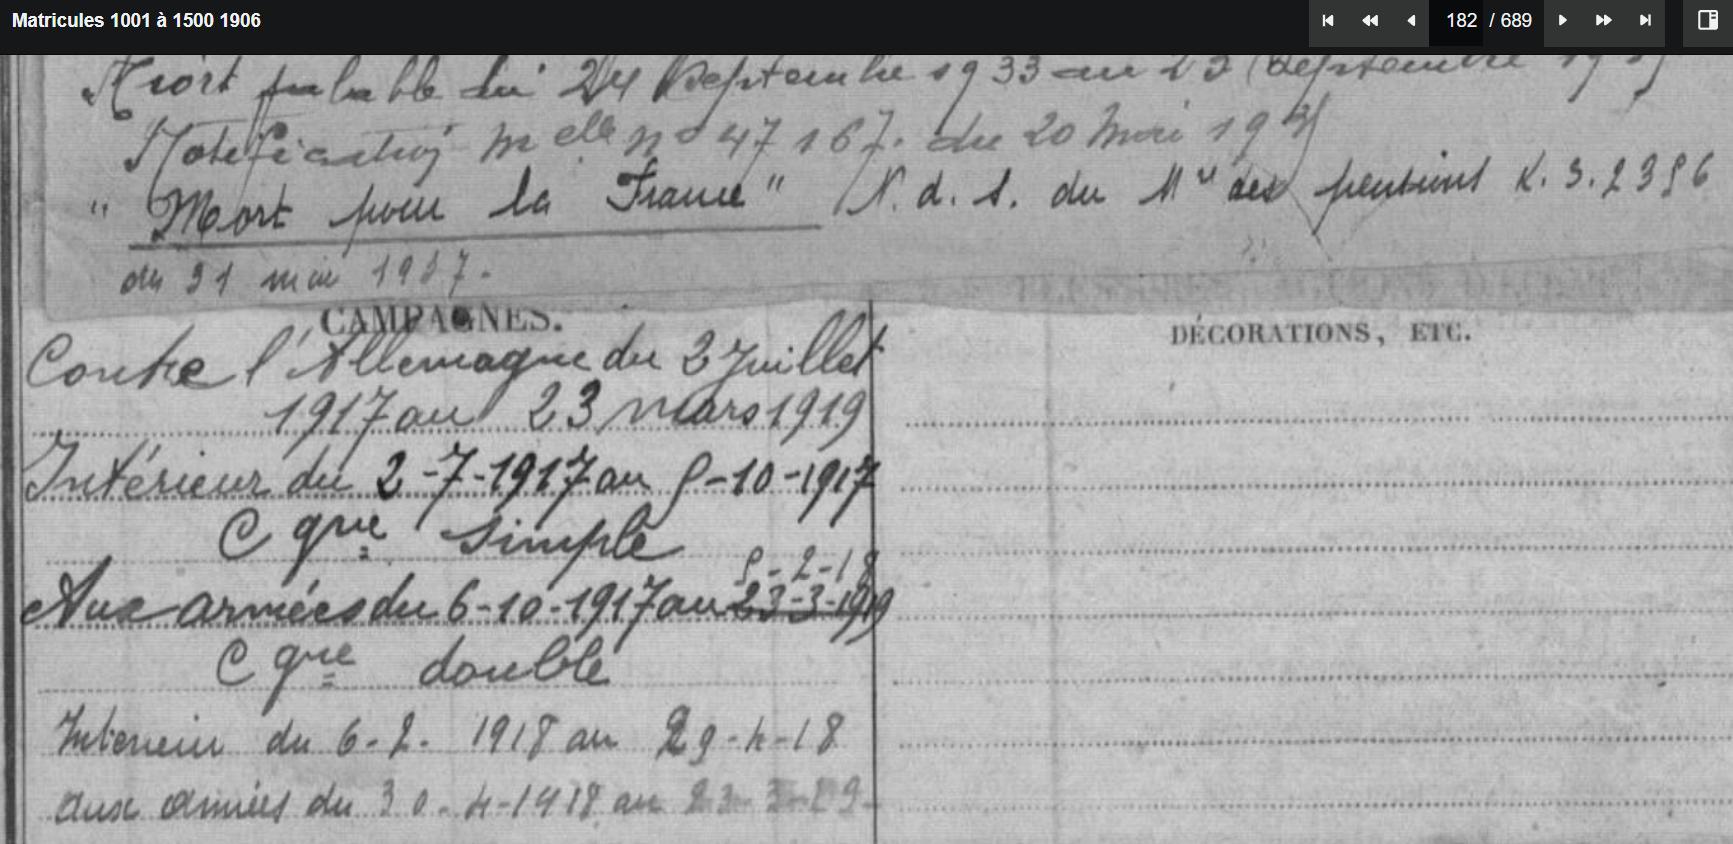 Matricules 1001 à 1500 1906
182 / 689
Mort palable du 24 Septembre 1933 au 23 Septembre
Notification melle no 47167. du 20 Mai 193
" Mort pour la France" N. d. s. du Mre des pensions K. 3. 2396
du 31 mai 1937.
CAMPAGNES.
DÉCORATIONS, ETC.
Contre l'Allemagne du 2 Juillet
1917 au 23 mars 1919
Intérieur du 2-7-1917 au 5-10-1917
Cgne simple
5-2-18
Aux armées du 6-10-1917 au 23-3-1919
Cgne double
Interieur du 6-2-1918 au 29-4-18
aux armées du 30-4-1918 au 23-3-19-